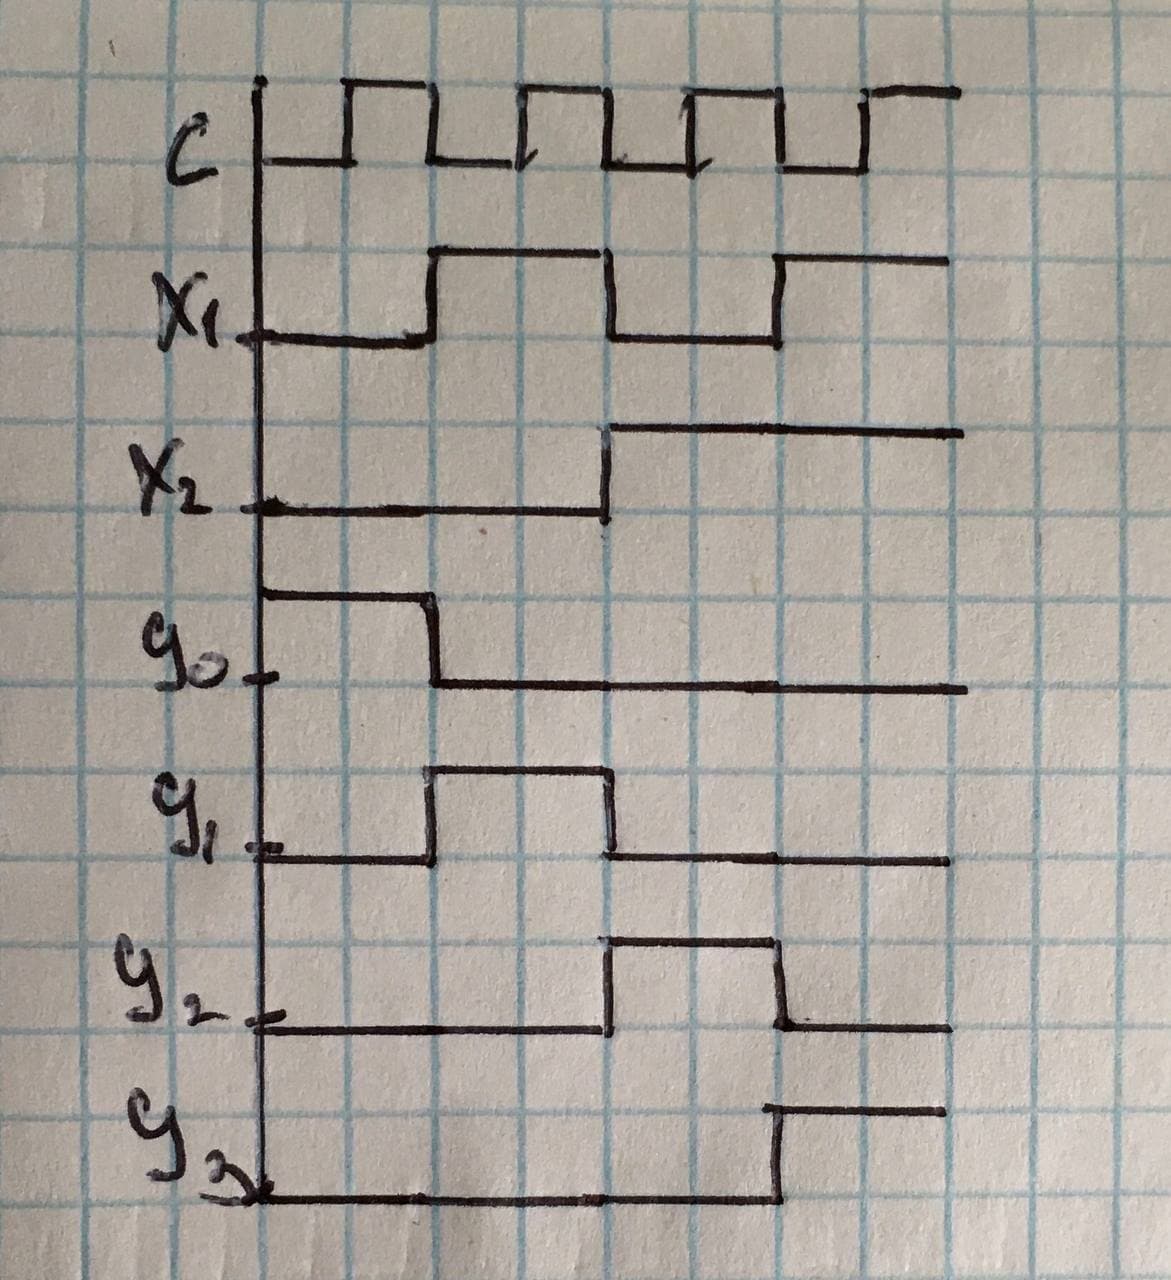 C
X1
X2
y0
y1
y2
y3